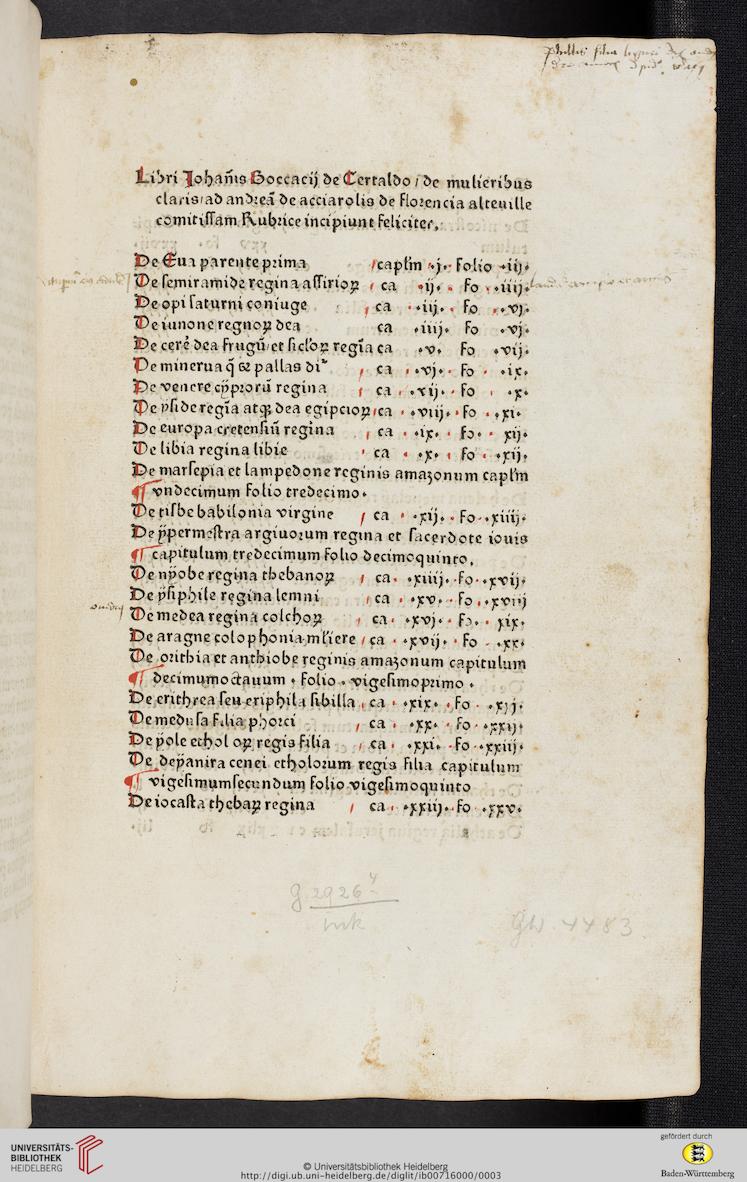 Libri Johañis Boccacij de Certaldo / de mulieribus
claris / ad andreā de acciarolis de florencia alteuille
comitissam Rubrice incipiunt feliciter.
De Eua parente prima / caplm ·j· folio ·iij·
De semiramide regina assirioꝝ / ca ·ij· fo ·iiij·
De opi saturni coniuge / ca ·iij· fo ·vj·
De iunone regnoꝝ dea ca ·iiij· fo ·vj·
De cerē dea frugū / et siculoꝝ regīa ca ·v· fo ·vij·
De minerua q̄ et pallas / ca ·vj· fo ·ix·
De venere cÿpriorū regina / ca ·vij· fo ·x·
De ÿside regīa atqꝫ dea egipcioꝝ / ca ·viij· fo ·xi·
De europa cretensiū regina / ca ·ix· fo ·xij·
De libia regina libie / ca ·x· fo ·xij·
De marsepia et lampedone reginis amazonum caplm
¶ vndecimum folio tredecimo·
De tisbe babilonia virgine / ca ·xij· fo ·xiiij·
De ÿpermestra argiuorum regina et sacerdote iouis
¶ capitulum tredecimum folio decimoquinto.
De nÿobe regina thebanoꝝ / ca ·xiiij· fo ·xvij·
De ÿsiphile regina lemni / ca ·xv· fo ·xviij
De medea regina colchoꝝ / ca ·xvj· fo ·xix·
De aragne colophonia mliere / ca ·xvij· fo ·xx·
De orithia et anthiobe reginis amazonum capitulum
¶ decimumoctauum · folio · vigesimoprimo ·
De erithrea seu eriphila sibilla / ca ·xix· fo ·xxj·
De medusa filia phorci / ca ·xx· fo ·xxij·
De ÿole etholoꝝ regis filia / ca ·xxi· fo ·xxiij·
De deÿanira cenei etholorum regis filia capitulum
¶ vigesimumsecundum folio vigesimoquinto
De iocasta thebaꝝ regina / ca ·xxiij· fo ·xxv·
g. 2926 4
ink
GW. 4483
UNIVERSITÄTS-
BIBLIOTHEK
HEIDELBERG
© Universitätsbibliothek Heidelberg
http://digi.ub.uni-heidelberg.de/diglit/ib00716000/0003
gefördert durch
Baden-Württemberg